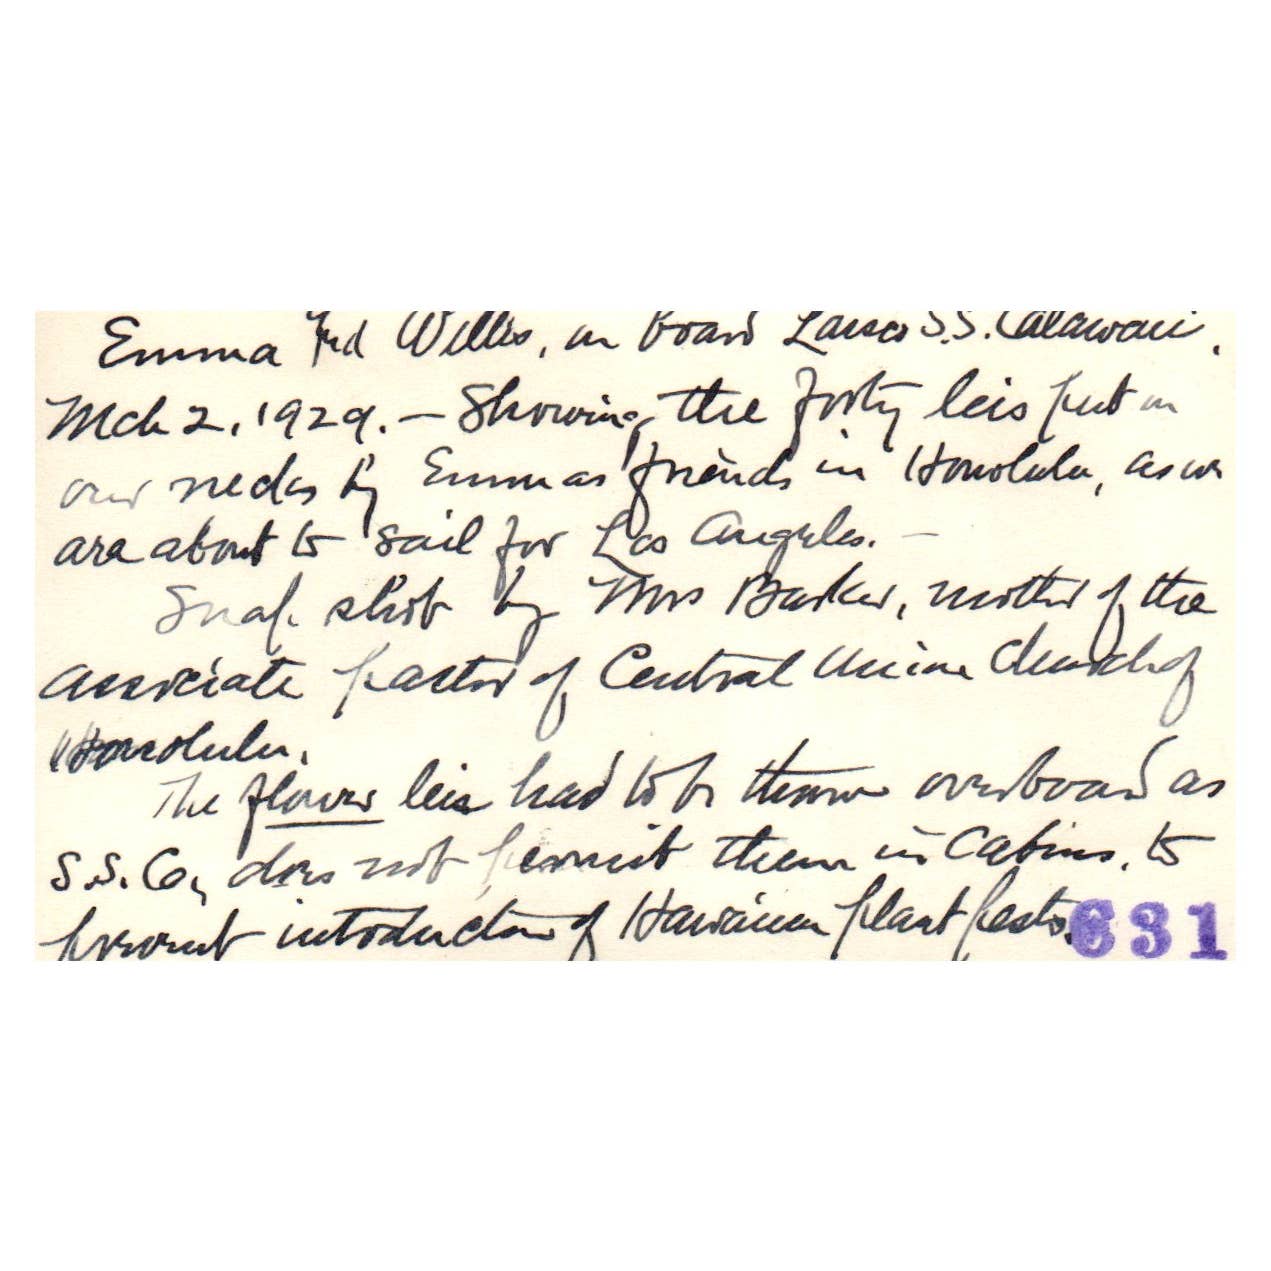 Emma and Willis, on board Lassco S.S. Calawaii,
Mch 2, 1929. — Showing the forty leis put on
our necks by Emmas friends in Honolulu, as we
are about to sail for Los Angeles. —
Snap shot by Mrs Barker, mother of the
associate pastor of Central Union Church of
Honolulu.
The flower leis had to be thrown overboard as
S.S. Co, does not permit them in Cabins, to
prevent introduction of Hawaiian plant pests.
631